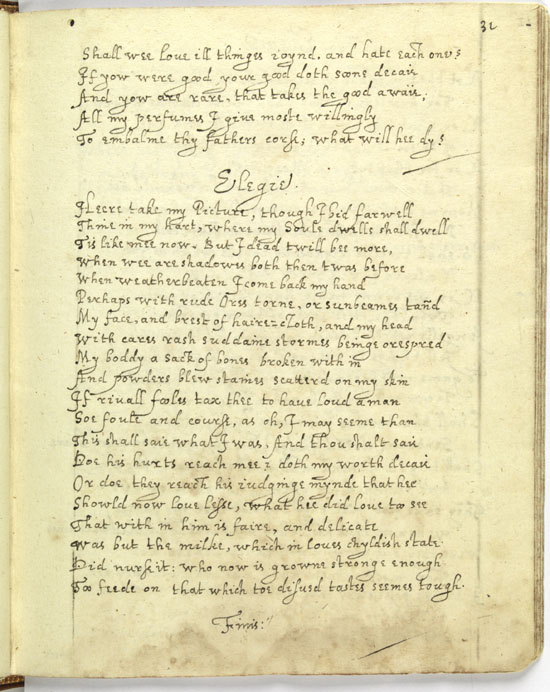 32
Shall wee love ill thinges ioynd. and hate each one?
If yow were good your good doth soone decaie
And yow are rare, that takes the good awaie;
All my perfumes I giue moste willingly
To embalme thy fathers corse; what will hee dy?
Elegie.
Heere take my Picture, though I bid farwell
Thine in my hart, where my Soule dwells shall dwell
Tis like mee now. But I dead twill bee more,
when wee are shadowes both then twas before
when weatherbeaten I come back my hand
Perhaps with rude Ores torne, or sunbeames tañd
My face, and brest of haire=cloth, and my head
with cares rash suddaine stormes beinge orespred
My boddy a sack of bones broken with in
And powders blew staines scatterd on my skin
If rivall fooles tax thee to have loud a man
Soe foule and course, as oh, I may seeme than
This shall saie what I was. And thou shalt saii
Doe his hurts reach mee? doth my worth decaii
Or doe they reach his iudginge mynde that hee
Showld now love lesse, what hee did love to see
That with in him is faire, and delicate
was but the milke, which in loves chyldish state
Did nurse it: who now is growne stronge enough
To feede on that which toe disusd tastes seemes tough.
Finis: